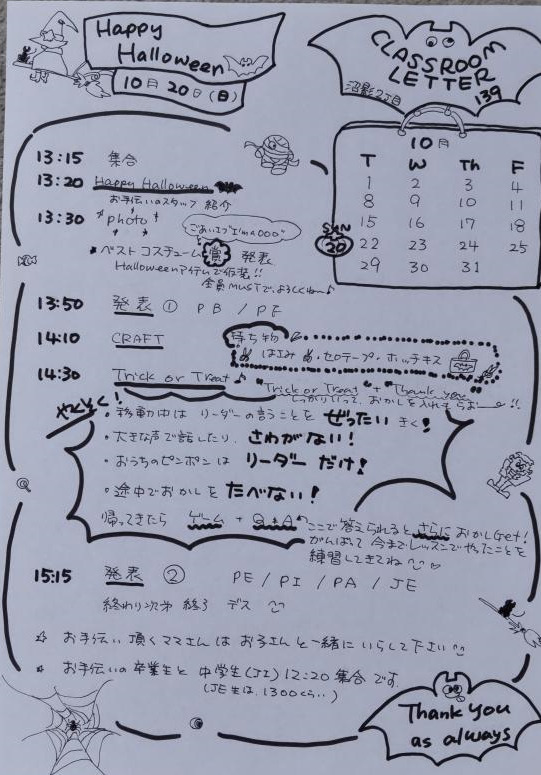 Happy
Halloween
10月20日(日)
CLASSROOM
LETTER
139
沼影2丁目
10月
T W Th F
1 2 3 4
8 9 10 11
15 16 17 18
SUN
20
22 23 24 25
29 30 31
13:15 集合
13:20 Happy Halloween
お手伝いのスタッフ 紹介
13:30 photo
ベストコスチューム賞 発表
Halloweenアイテムで仮装!!
全員MUSTで、よろしくね〜♪
13:50 発表① PB / PF
14:10 CRAFT
持ち物
はさみ・セロテープ・ホッチキス
14:30 Trick or Treat♪
"Trick or Treat" + "Thank you"
しっかり言って、おかしを入れてもらおー!!
やくそく!
・移動中は リーダーの言うことを ぜったい きく!
・大きな声で話したり、さわがない!
・おうちのピンポンは リーダー だけ!
・途中でおかしを たべない!
帰ってきたら ゲーム + Q&A
ここで答えられると さらに おかしGet!
がんばって 今までレッスンでやったことを
練習してきてね
15:15 発表② PE / PI / PA / JE
終わり次第 終了 デス
☆ お手伝い 頂くママさんは お子さんと一緒に いらして下さい
★ お手伝いの卒業生と 中学生(JI) 12:20 集合です。
(JE生は、1300くらい)
Thank you
as always